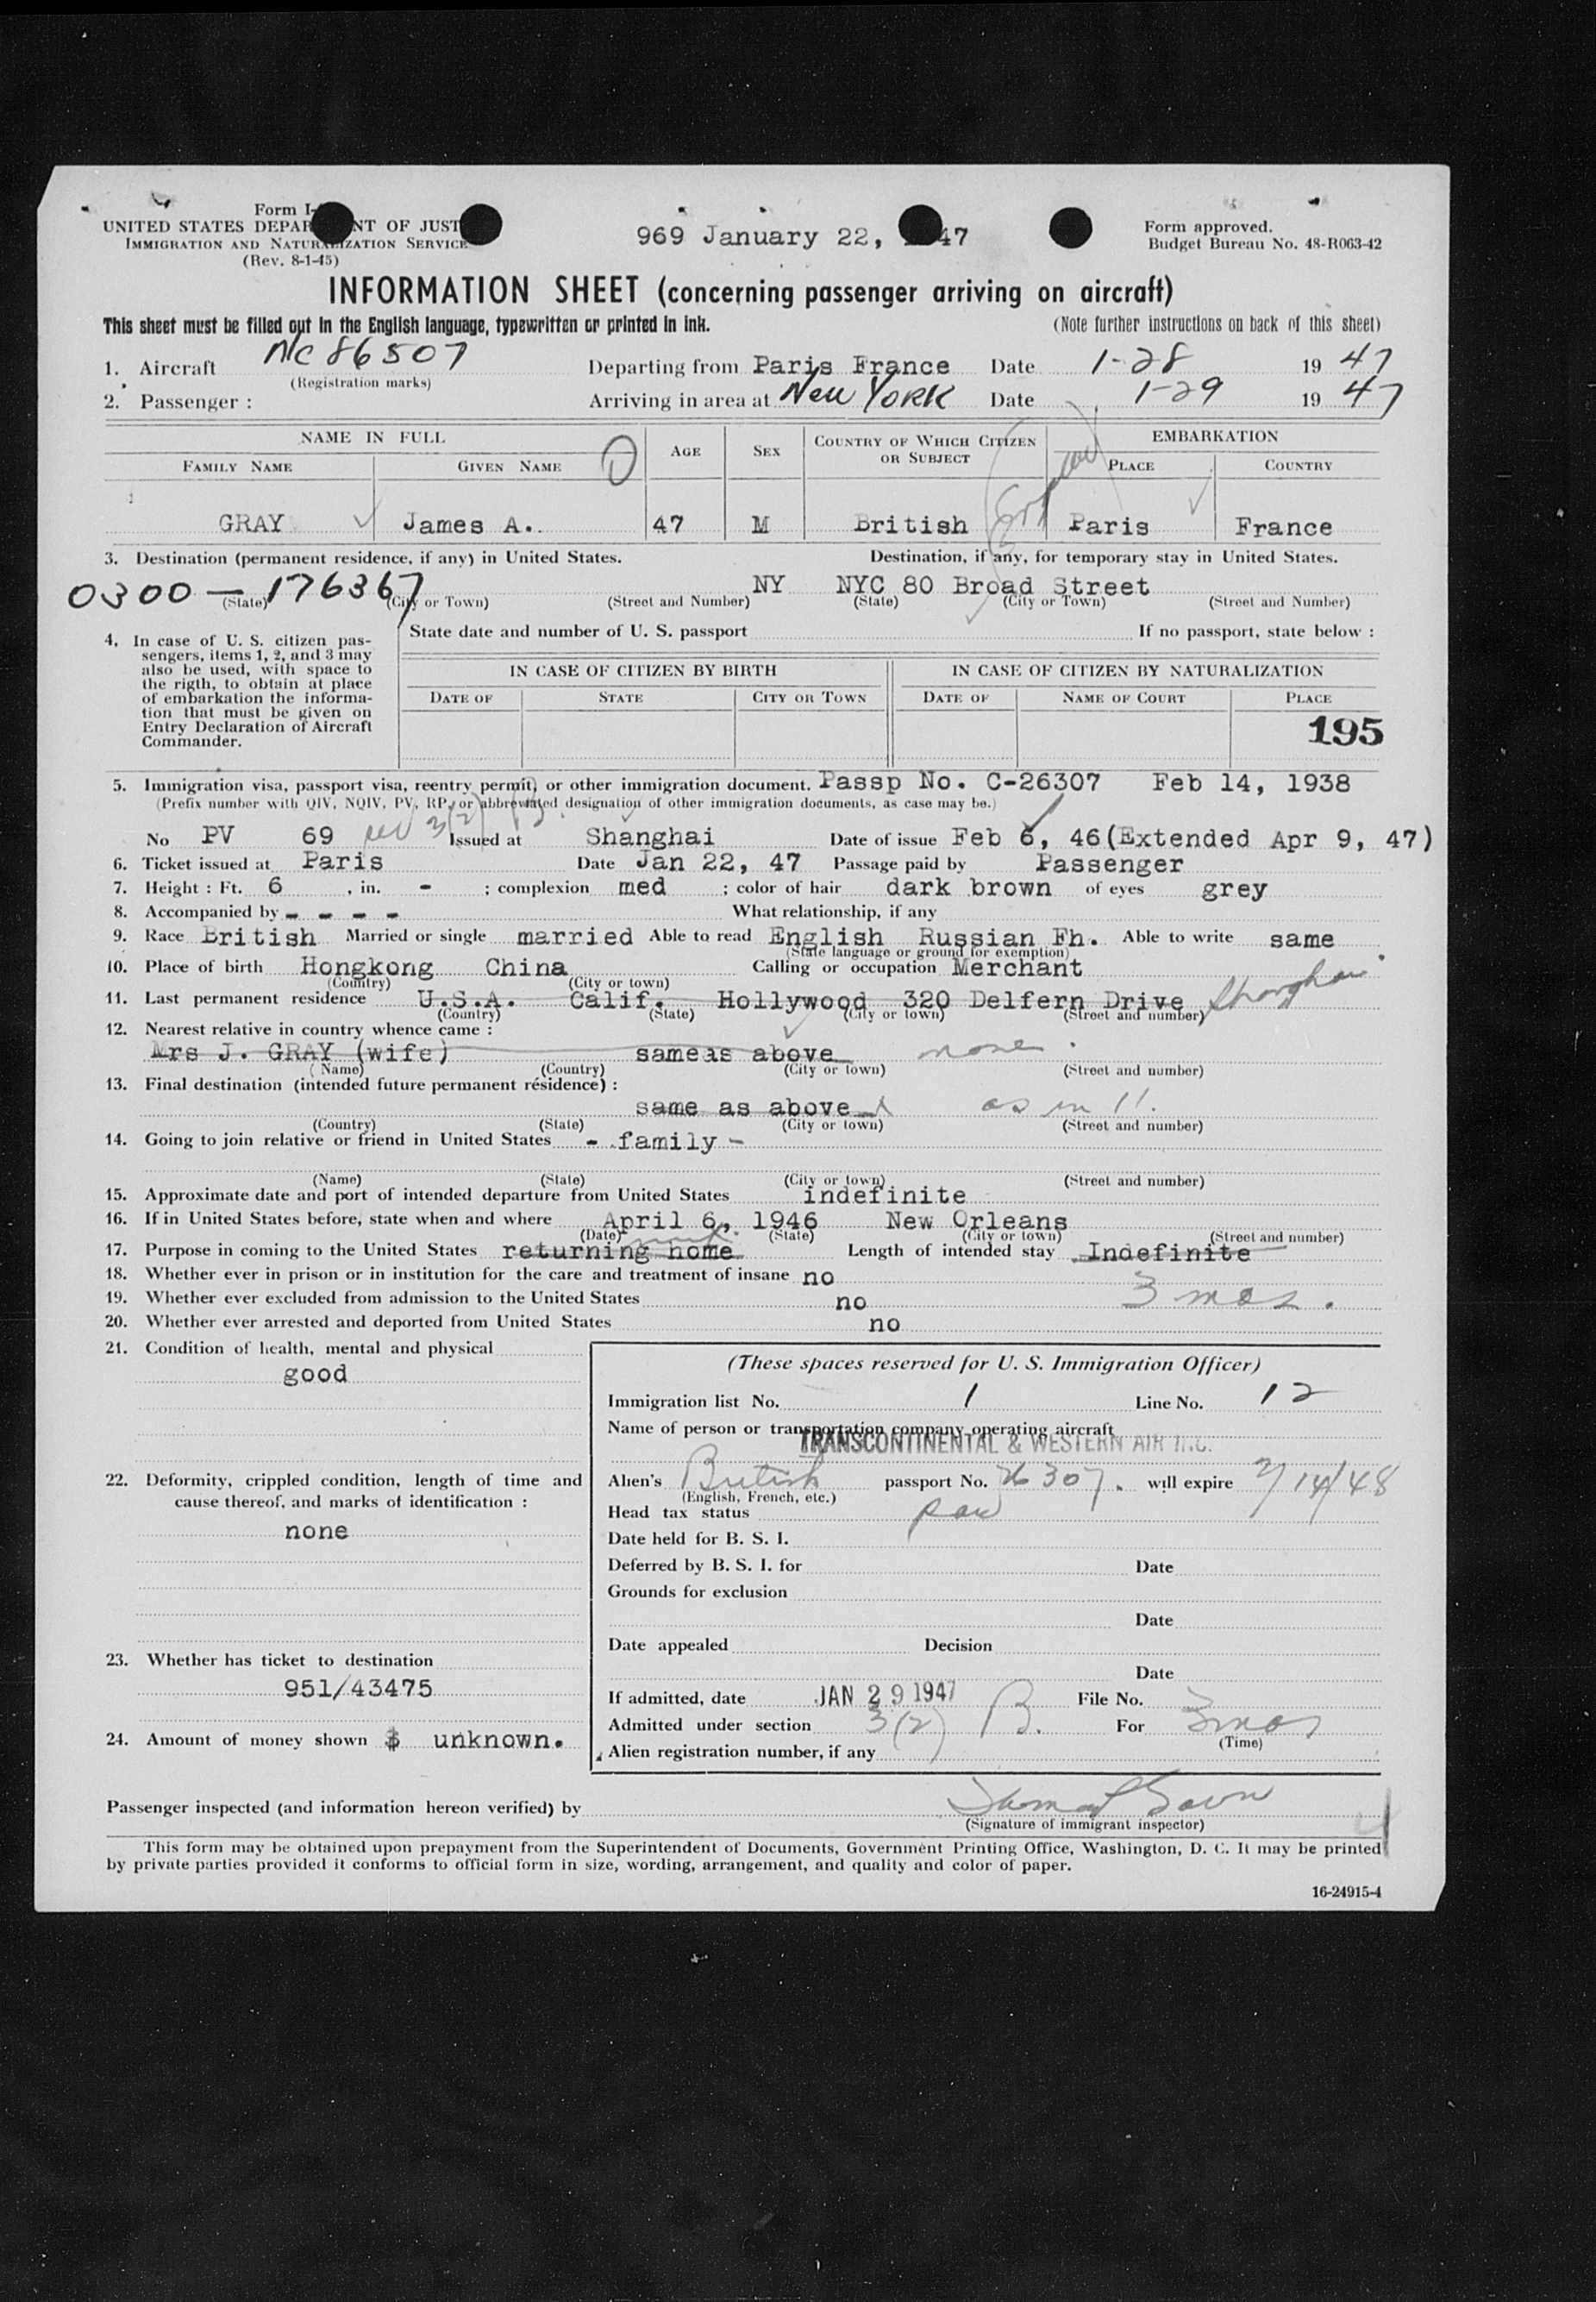 Form I-
UNITED STATES DEPAR NT OF JUST
IMMIGRATION AND NATURALIZATION SERVICE
(Rev. 8-1-45)
969 January 22, 47
Form approved.
Budget Bureau No. 48-R063-42
INFORMATION SHEET (concerning passenger arriving on aircraft)
This sheet must be filled out in the English language, typewritten or printed in ink.
(Note further instructions on back of this sheet)
1. Aircraft NC 86507 Departing from Paris France Date 1-28 19 47
(Registration marks)
2. Passenger : Arriving in area at New York Date 1-29 19 47
NAME IN FULL AGE SEX COUNTRY OF WHICH CITIZEN OR SUBJECT EMBARKATION
FAMILY NAME GIVEN NAME PLACE COUNTRY
GRAY James A. 47 M British Paris France
3. Destination (permanent residence, if any) in United States. Destination, if any, for temporary stay in United States.
0300 - 176367 NY NYC 80 Broad Street
(State) (City or Town) (Street and Number) (State) (City or Town) (Street and Number)
4. In case of U. S. citizen pas-
sengers, items 1, 2, and 3 may
also be used, with space to
the rigth, to obtain at place
of embarkation the informa-
tion that must be given on
Entry Declaration of Aircraft
Commander.
State date and number of U. S. passport If no passport, state below :
IN CASE OF CITIZEN BY BIRTH IN CASE OF CITIZEN BY NATURALIZATION
DATE OF STATE CITY OR TOWN DATE OF NAME OF COURT PLACE
195
5. Immigration visa, passport visa, reentry permit, or other immigration document. Passp No. C-26307 Feb 14, 1938
(Prefix number with QIV, NQIV, PV, RP, or abbreviated designation of other immigration documents, as case may be.)
No PV 69 3(2) Issued at Shanghai Date of issue Feb 6, 46(Extended Apr 9, 47)
6. Ticket issued at Paris Date Jan 22, 47 Passage paid by Passenger
7. Height : Ft. 6 , in. - ; complexion med ; color of hair dark brown of eyes grey
8. Accompanied by - - - - What relationship, if any
9. Race British Married or single married Able to read English Russian Fh. Able to write same
(State language or ground for exemption)
10. Place of birth Hongkong China Calling or occupation Merchant
(Country) (City or town)
11. Last permanent residence U.S.A. Calif. Hollywood 320 Delfern Drive Shanghai
(Country) (State) (City or town) (Street and number)
12. Nearest relative in country whence came :
Mrs J. GRAY (wife) same as above none.
(Name) (Country) (City or town) (Street and number)
13. Final destination (intended future permanent résidence) :
same as above as in 11.
(Country) (State) (City or town) (Street and number)
14. Going to join relative or friend in United States - family -
(Name) (State) (City or town) (Street and number)
15. Approximate date and port of intended departure from United States indefinite
16. If in United States before, state when and where April 6, 1946 New Orleans
(Date) (State) (City or town) (Street and number)
17. Purpose in coming to the United States returning home Length of intended stay Indefinite
18. Whether ever in prison or in institution for the care and treatment of insane no
3 mos.
19. Whether ever excluded from admission to the United States no
20. Whether ever arrested and deported from United States no
21. Condition of health, mental and physical
good
22. Deformity, crippled condition, length of time and
cause thereof, and marks of identification :
none
23. Whether has ticket to destination
951/43475
24. Amount of money shown $ unknown.
(These spaces reserved for U. S. Immigration Officer)
Immigration list No. 1 Line No. 12
Name of person or transportation company operating aircraft
TRANSCONTINENTAL & WESTERN AIR INC.
Alien's British passport No. 26307. will expire 2/14/48
(English, French, etc.)
Head tax status
Date held for B. S. I.
Deferred by B. S. I. for Date
Grounds for exclusion
Date
Date appealed Decision
Date
If admitted, date JAN 29 1947 File No.
Admitted under section 3(2) B. For 3 mos
(Time)
Alien registration number, if any
Passenger inspected (and information hereon verified) by
(Signature of immigrant inspector)
This form may be obtained upon prepayment from the Superintendent of Documents, Government Printing Office, Washington, D. C. It may be printed
by private parties provided it conforms to official form in size, wording, arrangement, and quality and color of paper.
16-24915-4